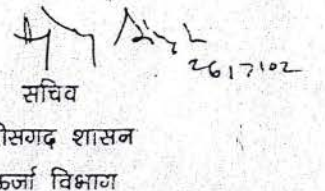 26/7/02
सचिव
ीसगढ़ शासन
ऊर्जा विभाग